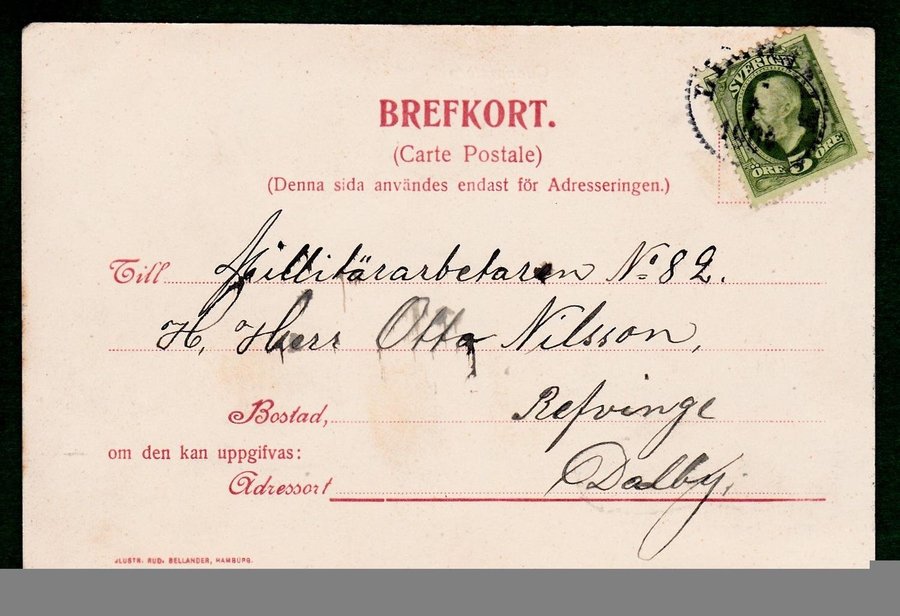 BREFKORT.
(Carte Postale)
(Denna sida användes endast för Adresseringen.)
SVERIGE
5
ÖRE ÖRE
Till Millitärarbetaren No 82.
H. Herr Otto Nilsson,
Bostad, Refvinge
om den kan uppgifvas:
Adressort Dalby,
JLUSTR. RUD. BELLANDER, HAMBURG.